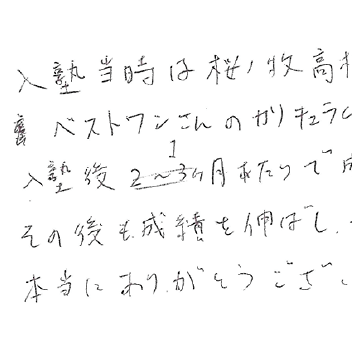 入塾当時は桜ノ牧高校
ベストワンさんのカリキュラ
入塾後 2~3ヶ月あたりで成
1
その後も成績を伸ばし、
本当にありがとうござい